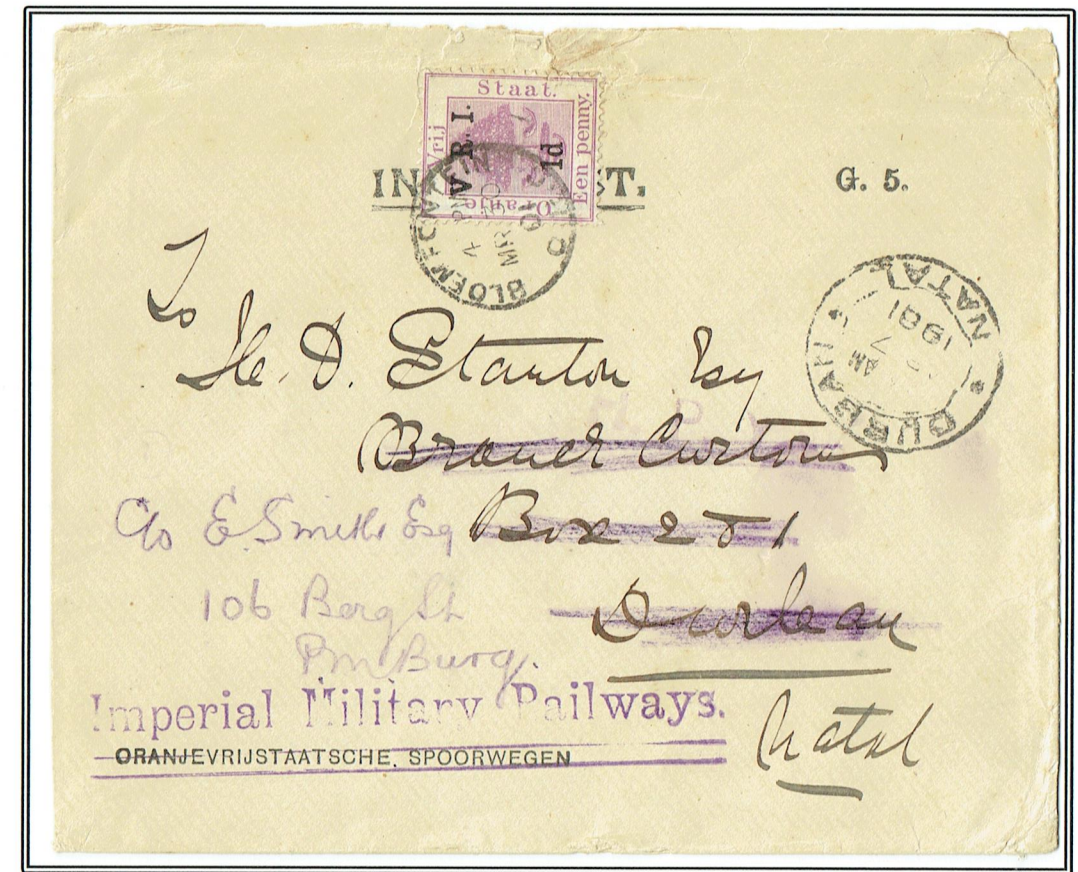 Staat.
Vrij
Een penny.
Oranje
V. R. I.
1d
IN ST.
G. 5.
BLOEMFONTEIN
MR
DURBAN
NATAL
AM
7
1901
To
H. D. Stanton Esq
Branch Customs
Box 281
Durban
Natal
C/o E. Smith Esq
106 Berg St
PmBurg.
Imperial Military Railways.
ORANJEVRIJSTAATSCHE. SPOORWEGEN